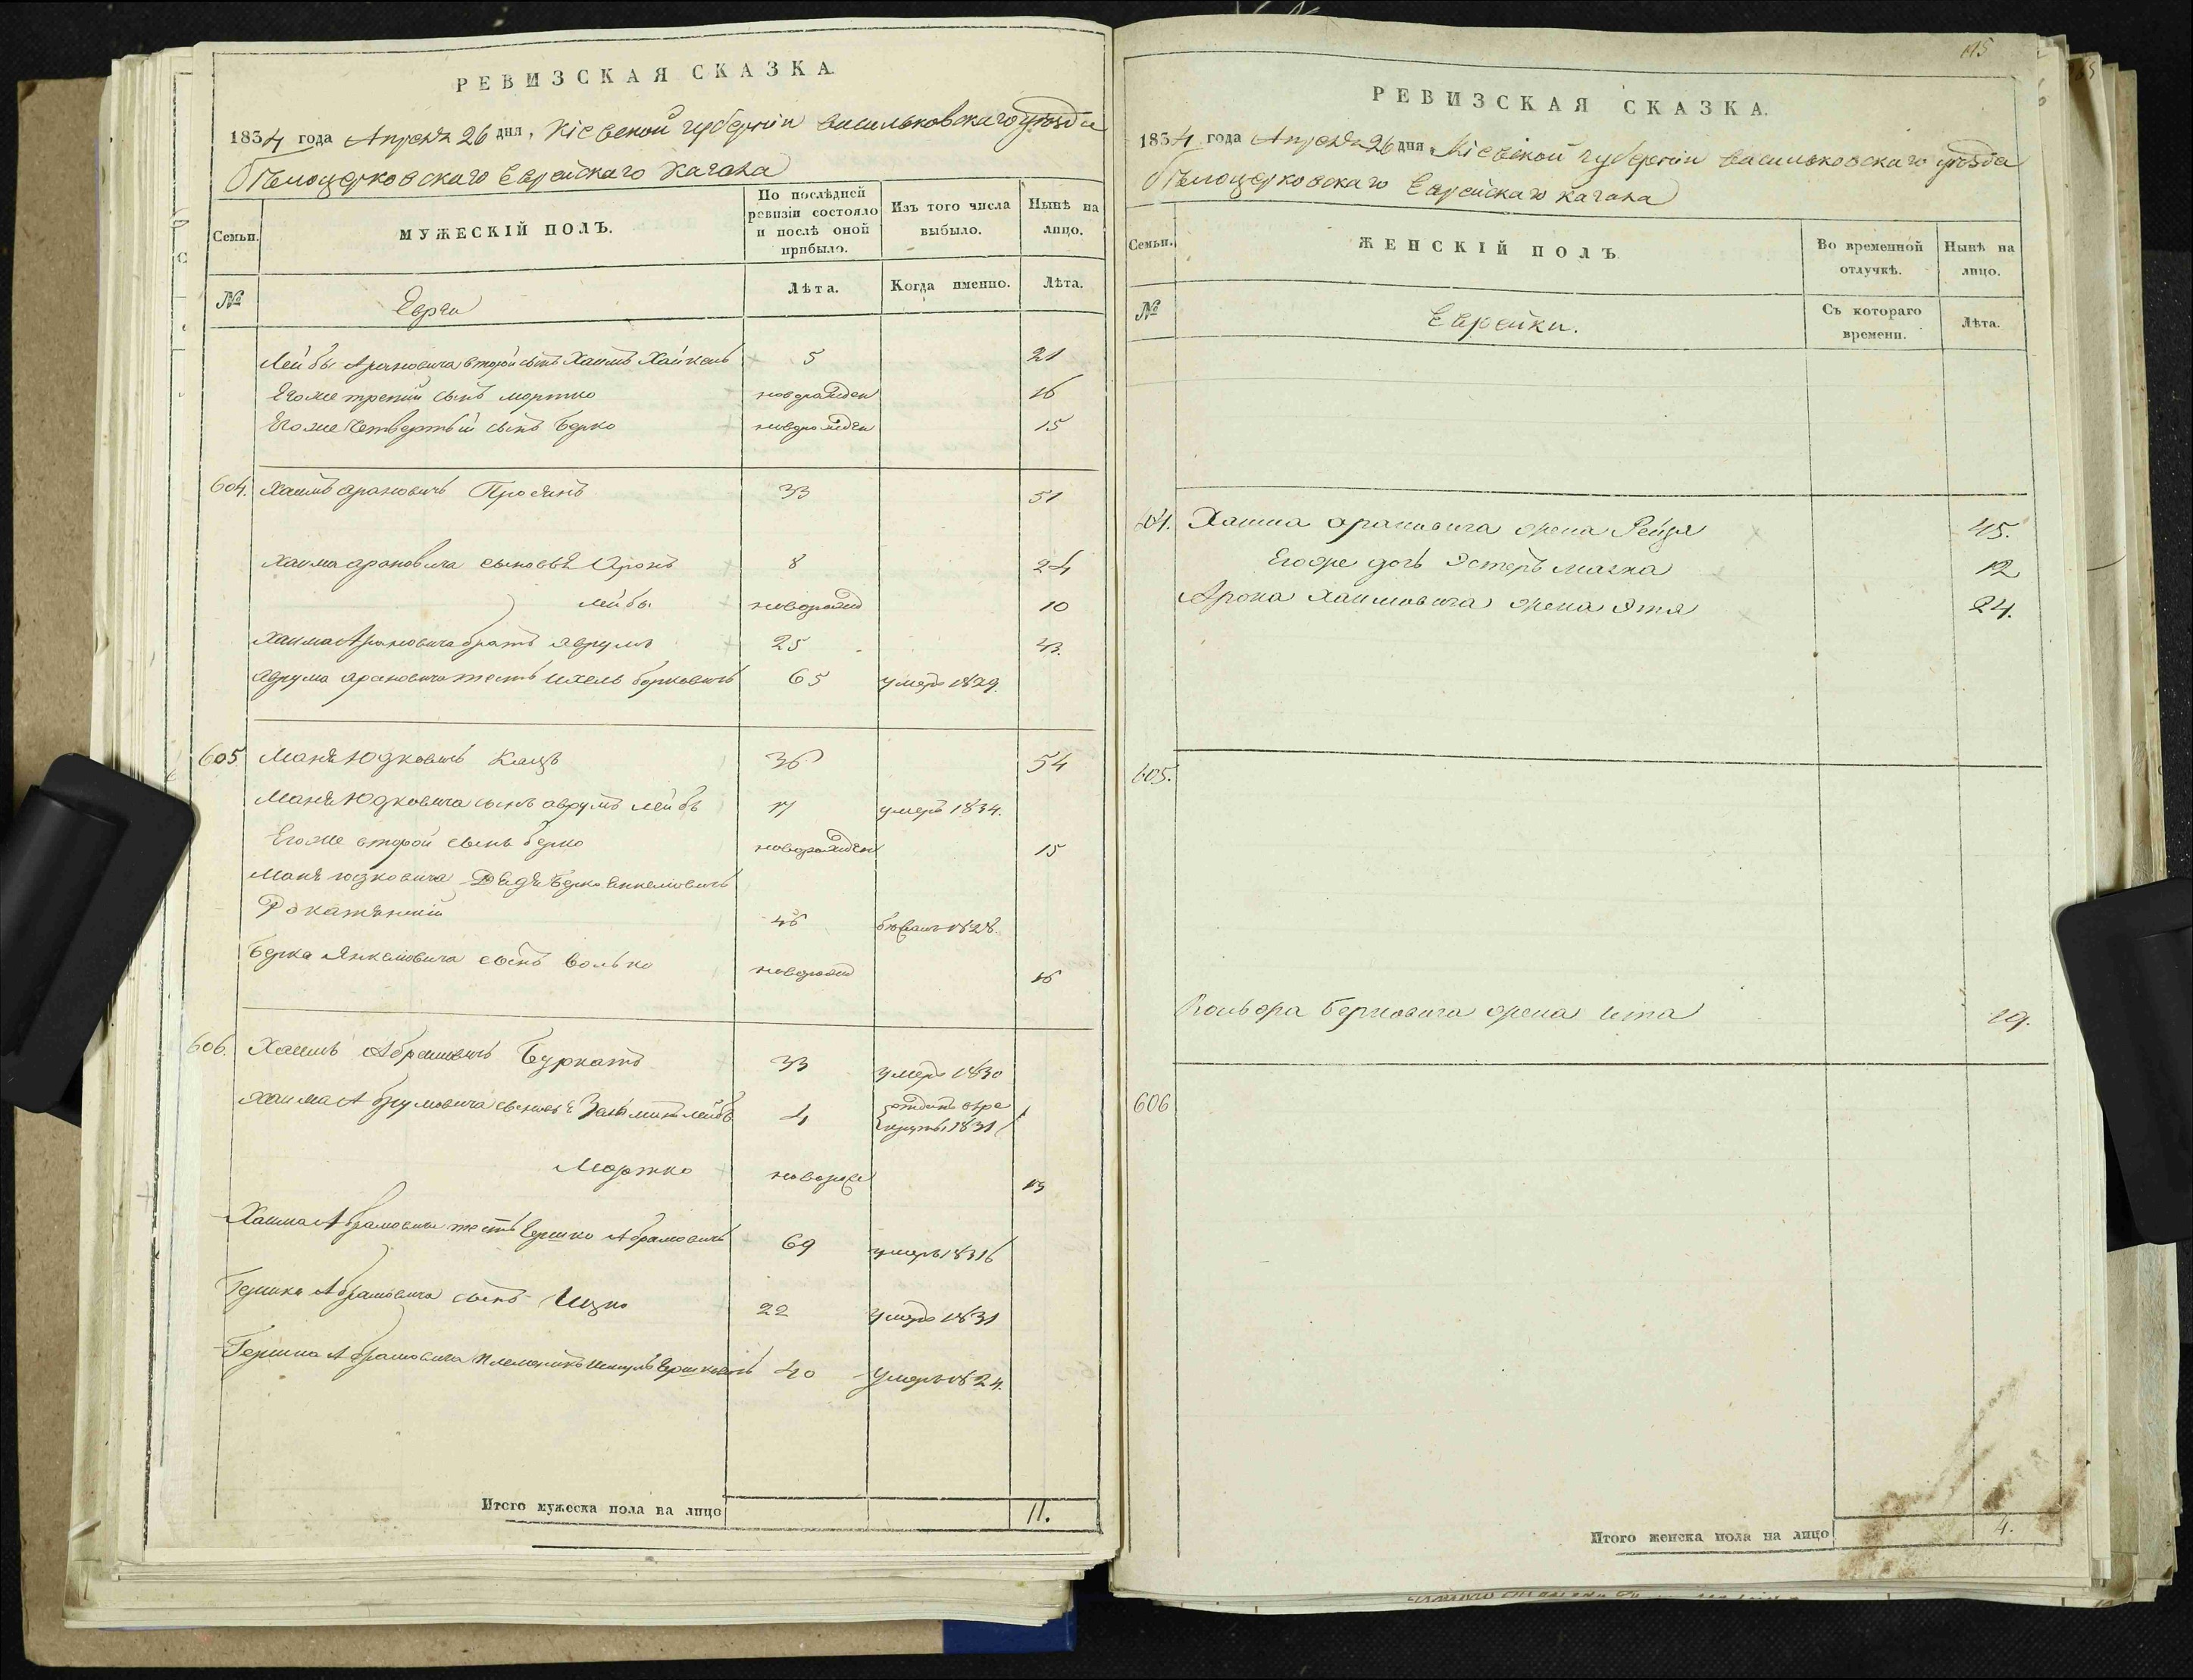 РЕВИЗСКАЯ СКАЗКА
1834 года Апреля 26 дня, Кіевской губерніи васильковскаго уѣзда
Бѣлоцерковскаго Еврейскаго Кагала
Семьи.
МУЖЕСКІЙ ПОЛЪ.
По послѣдней ревизіи состояло и послѣ оной прибыло.
Изъ того числа выбыло.
Нынѣ на лицо.
№
Евреи
Лѣта.
Когда именно.
Лѣта.
Лейбы Ароновича второй сынъ Хаимъ Хайкель 5 21
Егоже третій сынъ мортко новорожден 16
Егоже Четвертый сынъ Берко новорожден 15
604. Хаимъ ароновичъ 33 51
Хаима ароновича сыновья Аронъ 8 24
лейбъ новорожд 10
Хаима Ароновича братъ аврумъ 25 43.
Аврума ароновича тесть ихель борковичъ 65 умеръ 1829.
605 Маня Юдковичъ Кацъ 36 54
Маня Юдковича сынъ аврумъ лейбъ 17 умеръ 1834.
Егоже второй сынъ берко новорожден 15
Маня юдковича Дядя Берко Янкелевичъ
46 1828.
Берка Янкеловича сынъ волько новорожд 16
606. Хаимъ Абрамовичъ 33 умеръ 1830
Хаима Абрумовича сыновья лейбъ 4 отданъ вре
круты 1831
Мортко новорож 13
Хаима Абрамовича тесть Гершко Абрамовичъ 69 умеръ 1816
Гершка Абрамовича сынъ Ицко 22 умеръ 1831
Гершка Абрамовича племянникъ 40 умеръ 1824.
Итого мужеска пола на лицо 11.
115
РЕВИЗСКАЯ СКАЗКА.
1834 года Апреля 26 дня, Кіевской губерніи васильковскаго уѣзда
Бѣлоцерковскаго Еврейскаго Кагала
Семьи.
ЖЕНСКІЙ ПОЛЪ
Во временной отлучкѣ.
Нынѣ на лицо.
№
Еврейки.
Съ котораго времени.
Лѣта.
604. Хаима ароновича жена Рейзя 45.
Егоже дочь Эстеръ малка 12
Арона Хаимовича жена Этя 24.
605.
Берковича жена ита 19.
606
Итого женска пола на лицо 4.